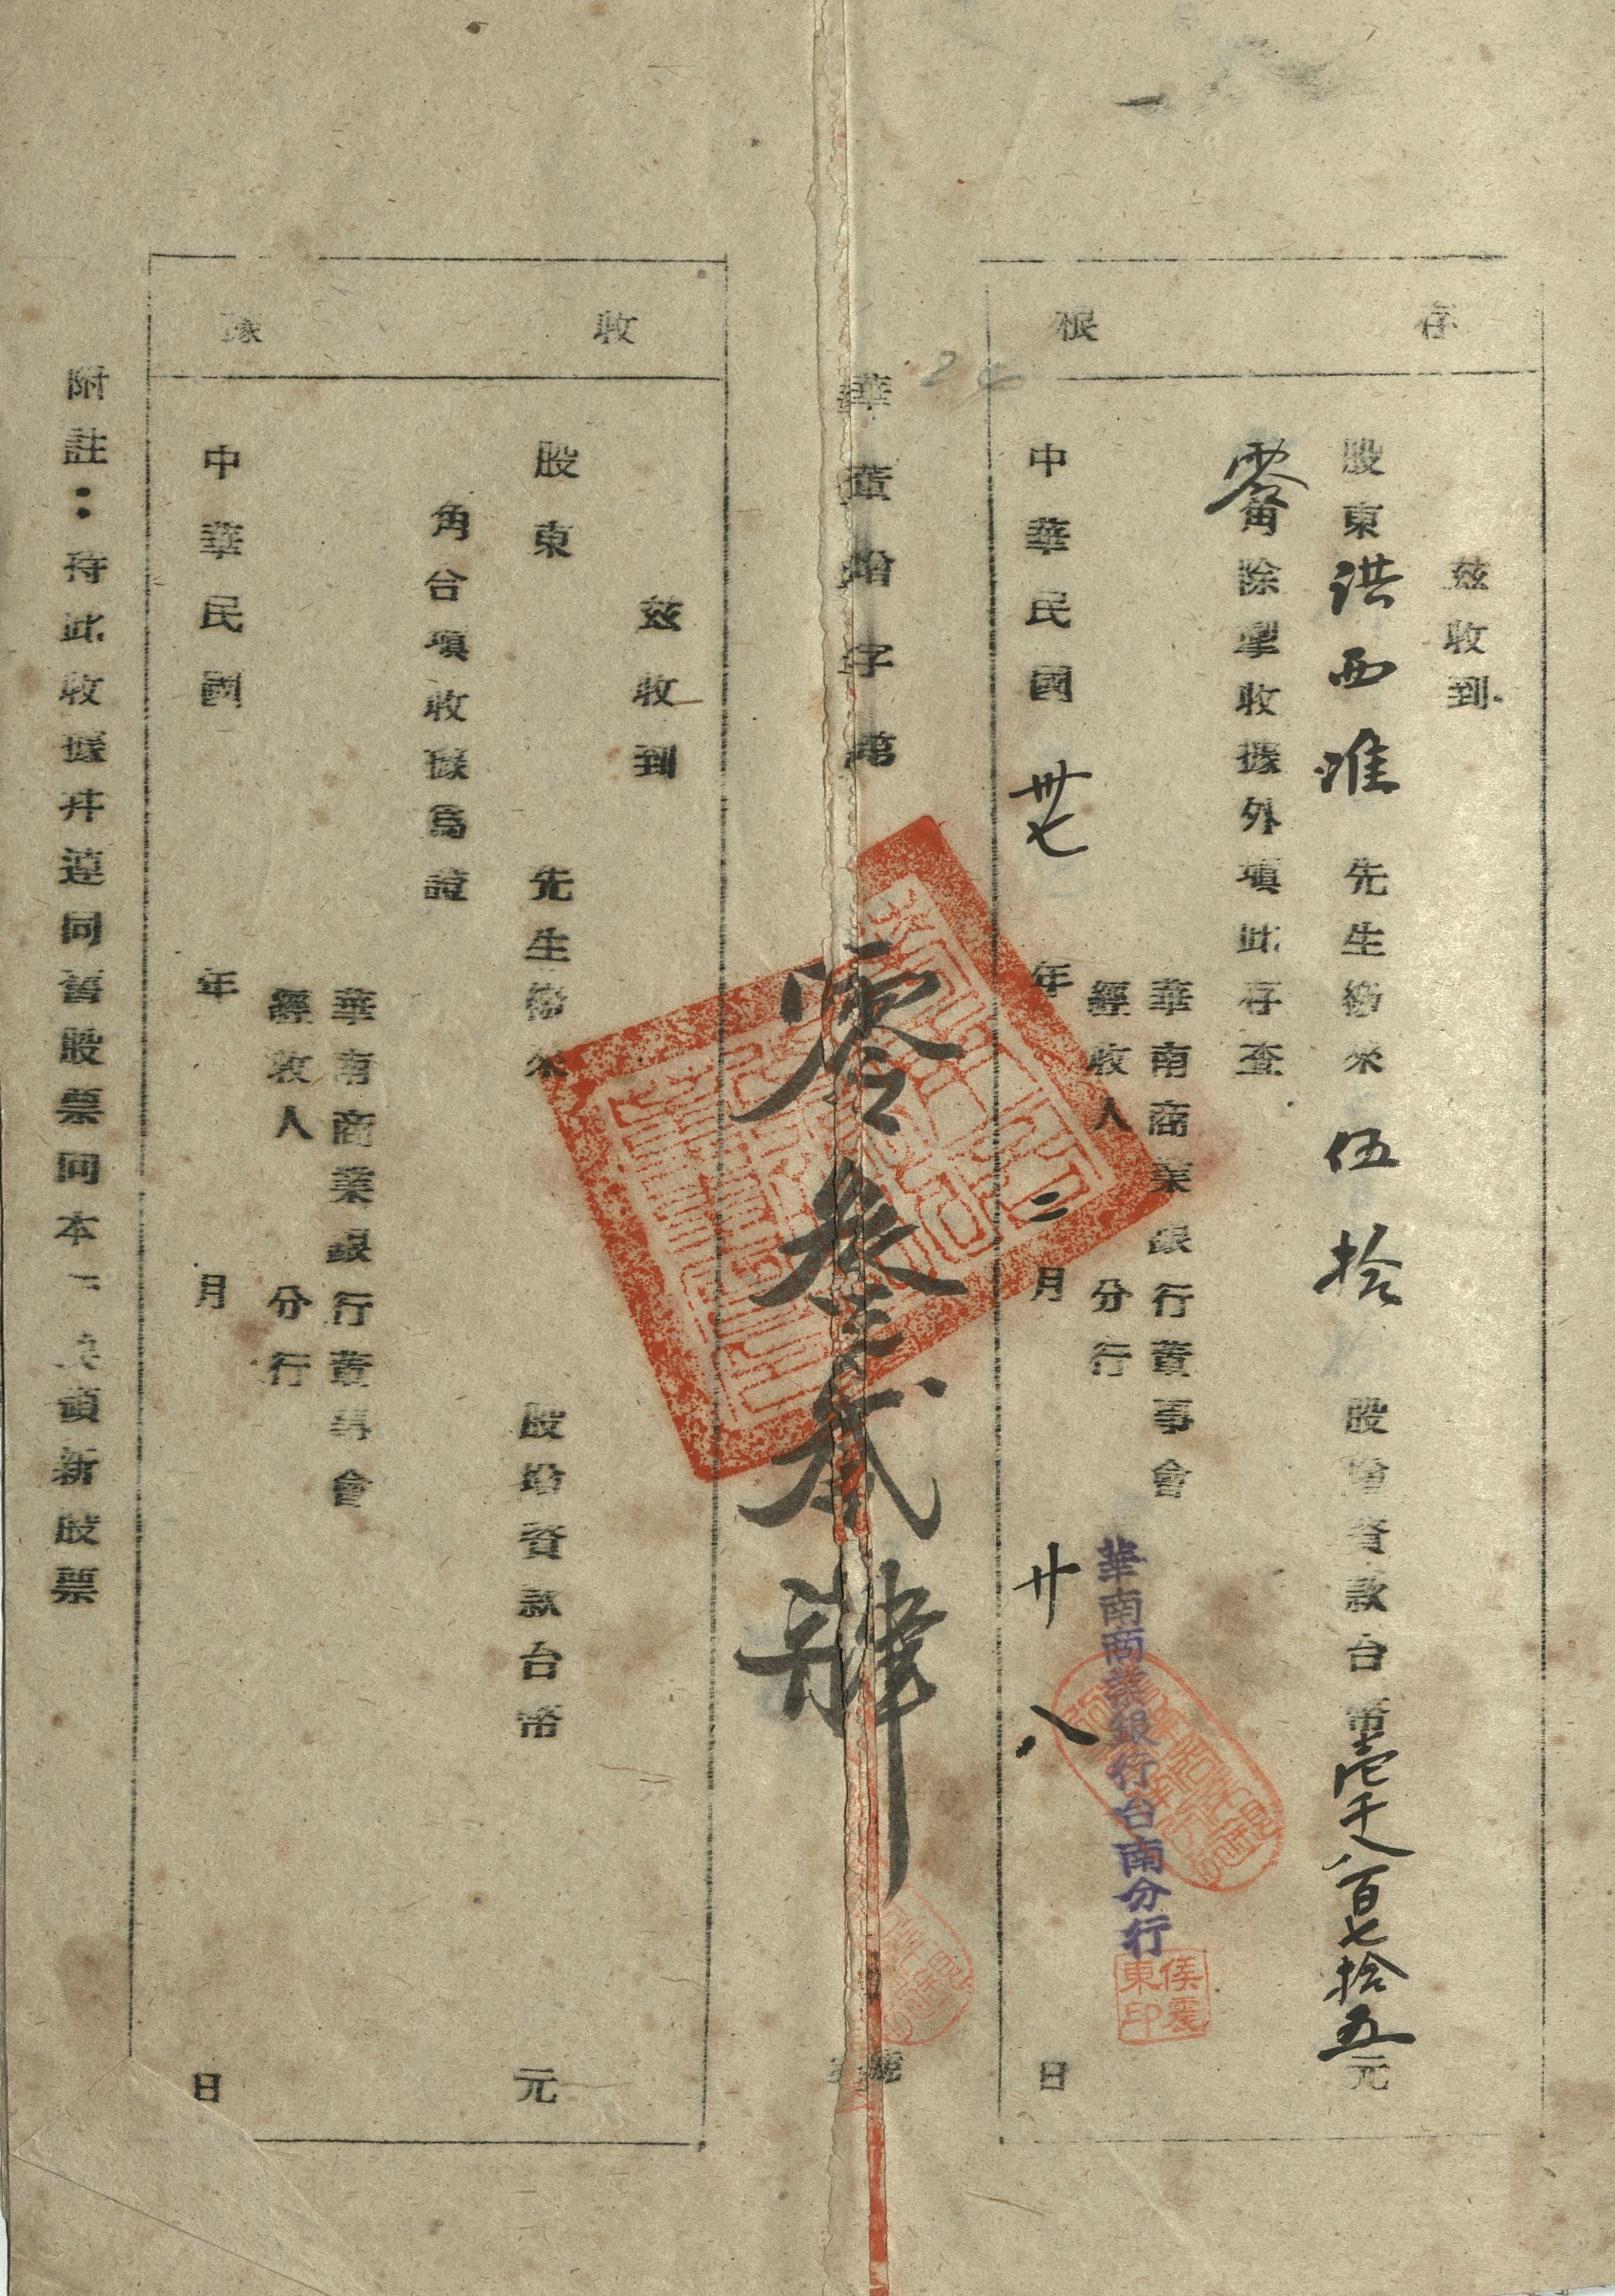 存根
茲收到
股東洪西淮先生繳來伍拾股增資款台幣壹千八百七拾五元
零角除掣收據外填此存查
華南商業銀行董事會
經收人分行
華南商業銀行台南分行
侯震東印
中華民國卅七年二月廿八日
華董增字第零叁貳肆號
收據
茲收到
股東先生繳來股增資款台幣元
角合填收據為證
華南商業銀行董事會
經收人分行
中華民國年月日
附註:持此收據并連同舊股票向本行領新股票